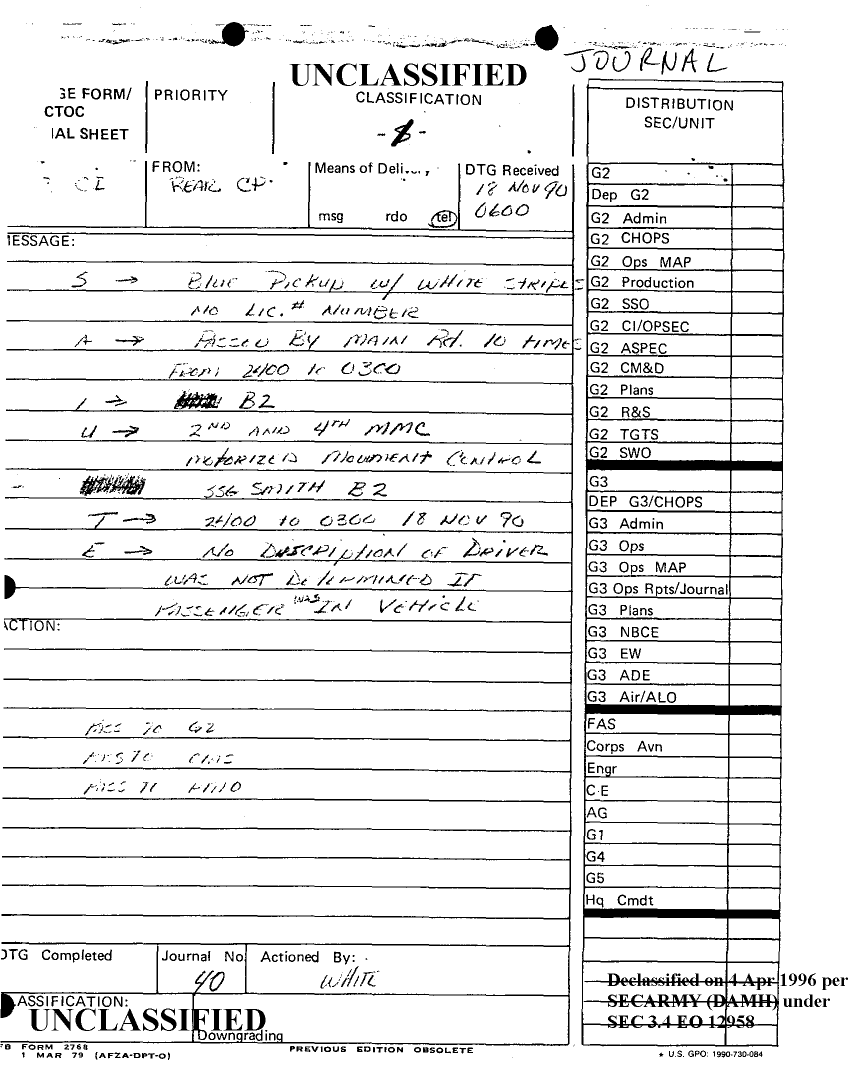 JOURNAL
UNCLASSIFIED
CLASSIFICATION
GE FORM/
CTOC
IAL SHEET
PRIORITY
DISTRIBUTION
SEC/UNIT
CI
FROM:
REAR CP.
Means of Delivery
msg rdo tel
DTG Received
18 NOV 90
0600
MESSAGE:
S → BLUE PICKUP W/ WHITE STRIPES
NO LIC.# NUMBER
A → PASSED BY MAIN Rd. 10 TIMES
FROM 2400 to 0300
L → B2
U → 2ND AND 4TH MMC
MOTORIZED MOVEMENT CONTROL
SSG SMITH B2
T → 2400 to 0300 18 NOV 90
E → NO DESCRIPTION OF DRIVER
WAS NOT DETERMINED IF
PASSENGER WAS IN VEHICLE
ACTION:
PASS TO G2
PASS TO
PASS TO
DTG Completed
Journal No.
40
Actioned By:
WHITE
CLASSIFICATION:
UNCLASSIFIED
Downgrading
FB FORM 2768
1 MAR 79 (AFZA-DPT-O)
PREVIOUS EDITION OBSOLETE
G2
Dep G2
G2 Admin
G2 CHOPS
G2 Ops MAP
G2 Production
G2 SSO
G2 CI/OPSEC
G2 ASPEC
G2 CM&D
G2 Plans
G2 R&S
G2 TGTS
G2 SWO
G3
DEP G3/CHOPS
G3 Admin
G3 Ops
G3 Ops MAP
G3 Ops Rpts/Journal
G3 Plans
G3 NBCE
G3 EW
G3 ADE
G3 Air/ALO
FAS
Corps Avn
Engr
C-E
AG
G1
G4
G5
Hq Cmdt
Declassified on 4 Apr 1996 per
SECARMY (DAMH) under
SEC 3.4 EO 12958
★ U.S. GPO: 1990-730-084